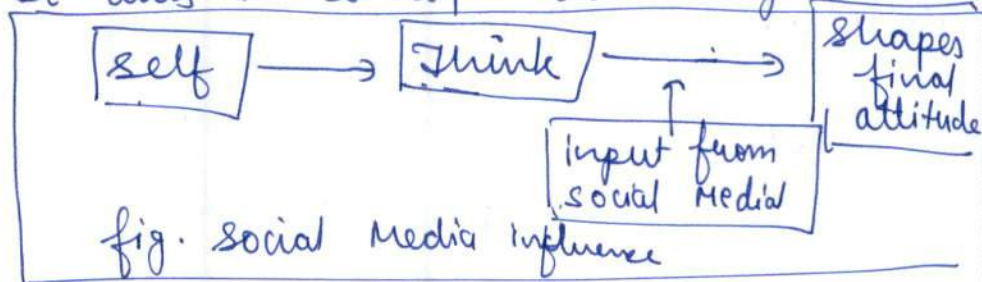 self
Think
shapes
final
attitude
input from
social Media
fig. social Media influence